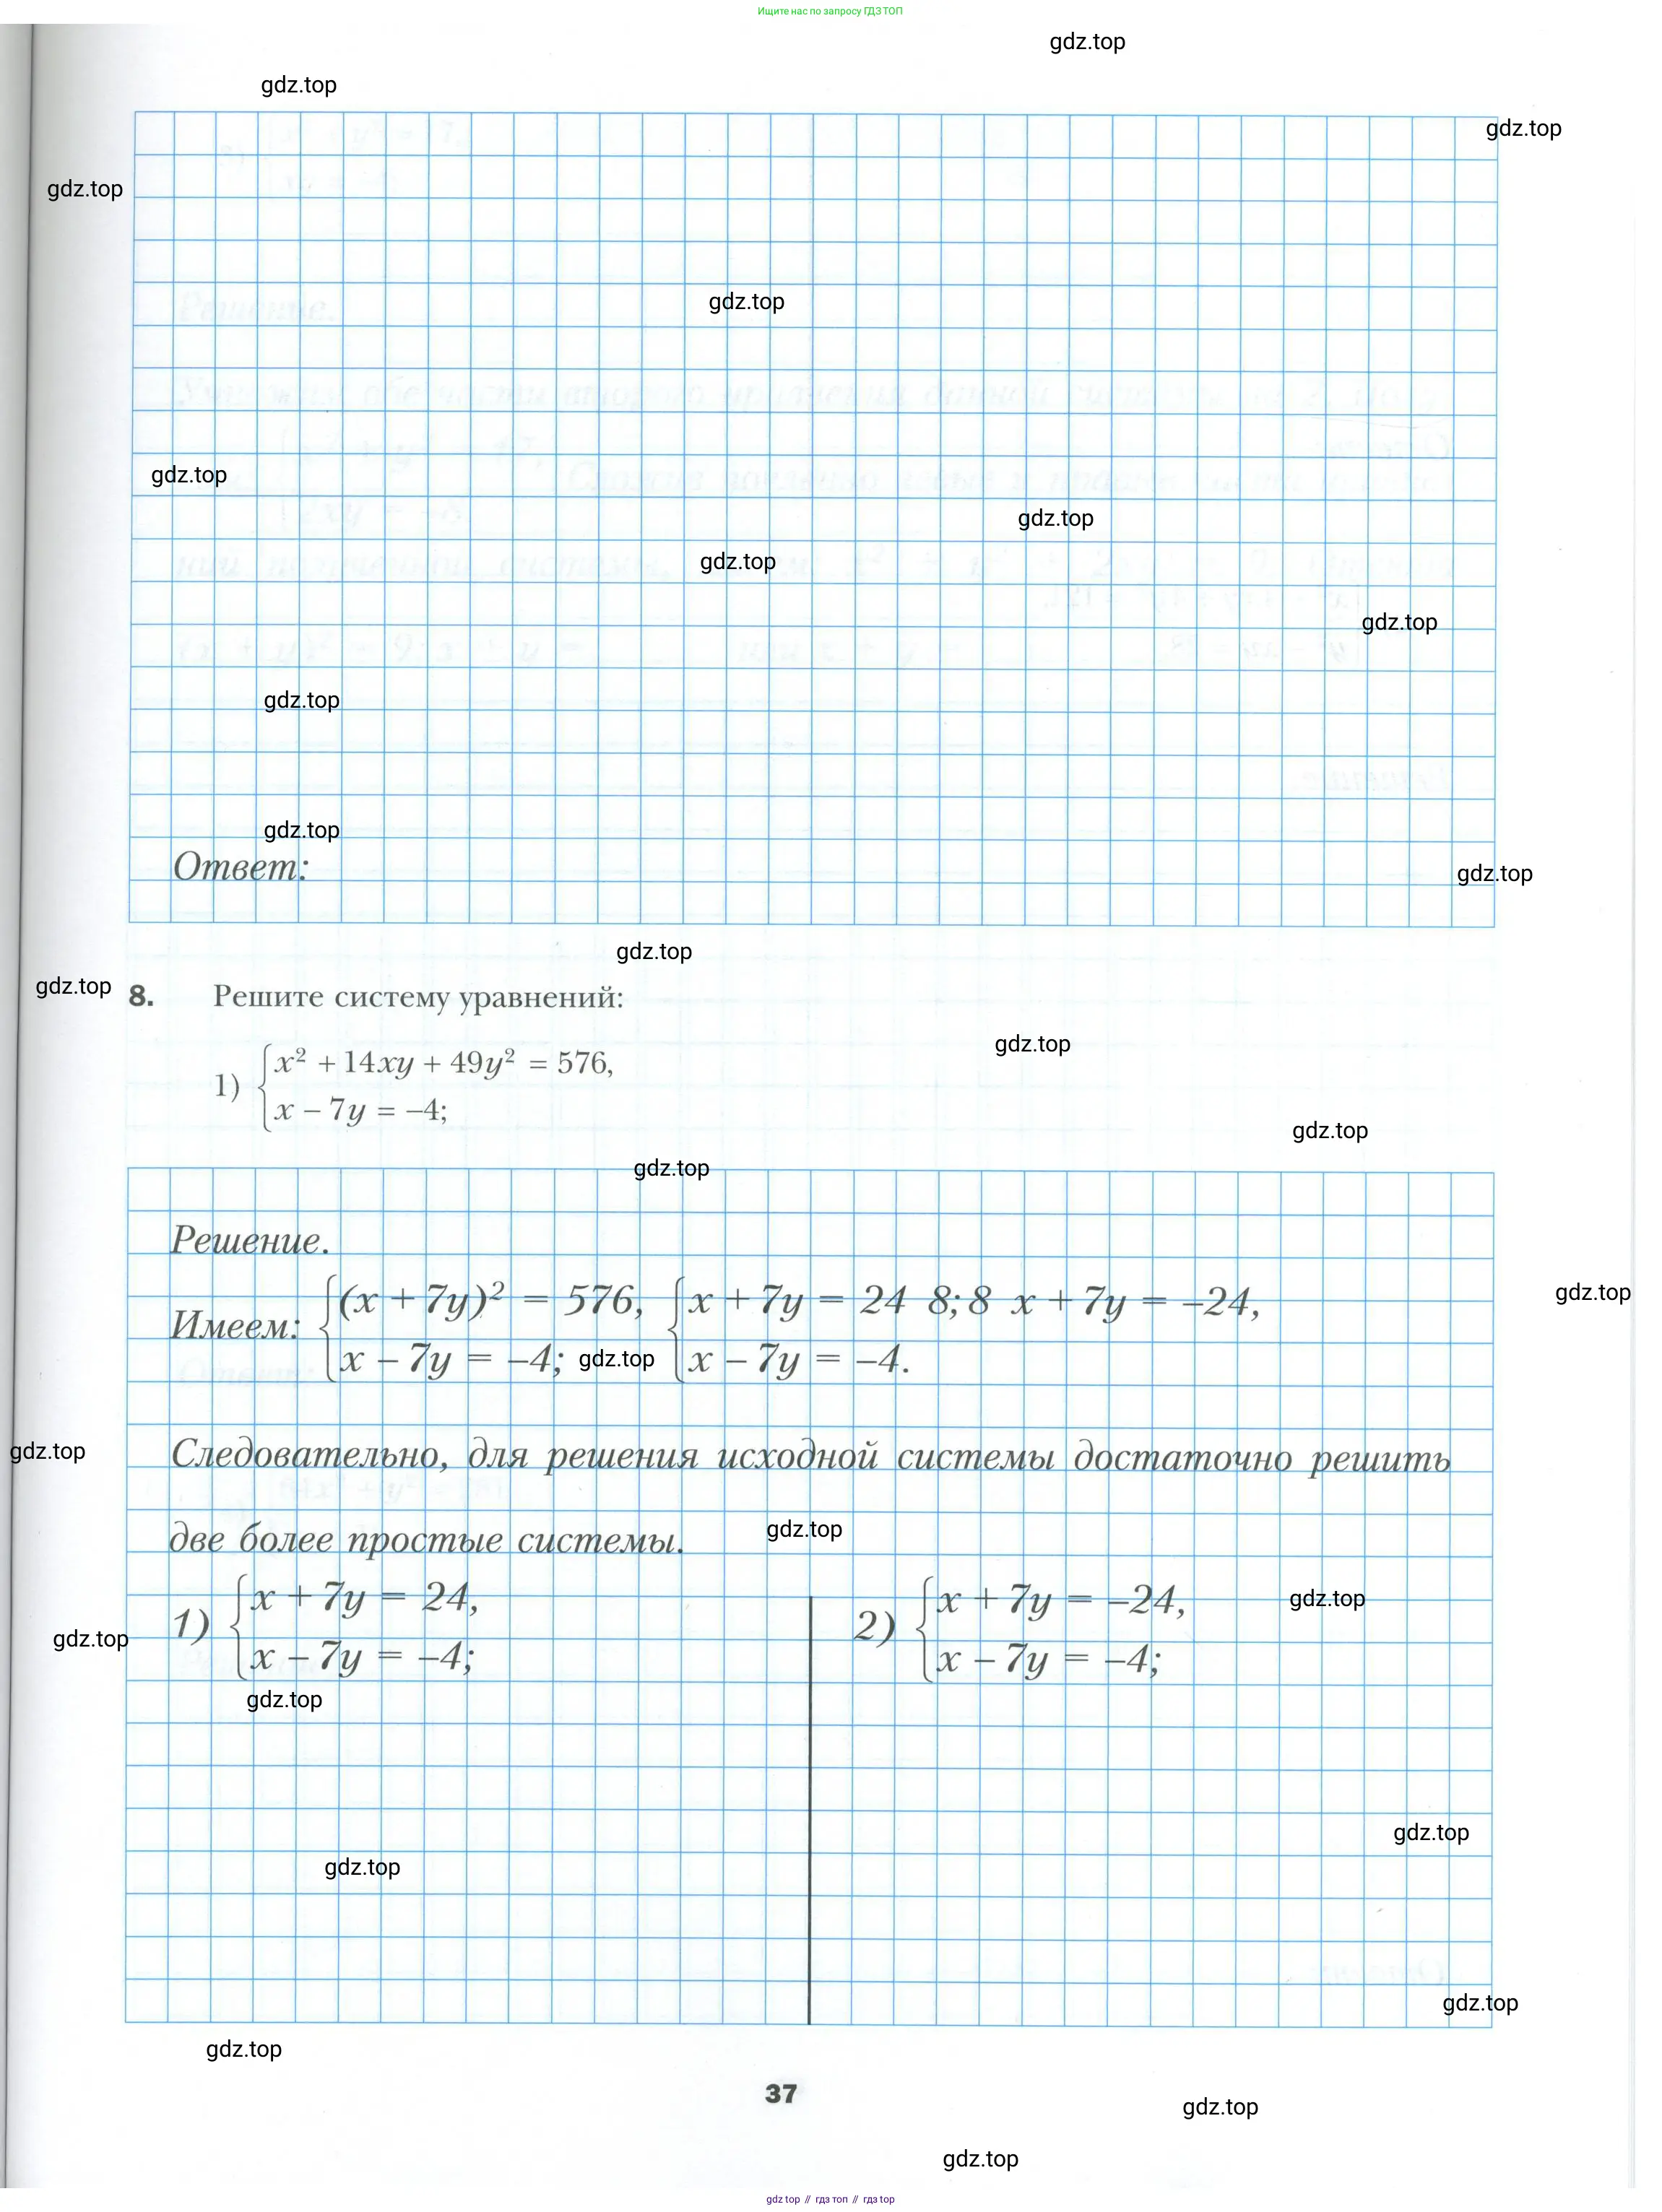 Ищите нас по запросу ГДЗ ТОП
gdz.top
gdz.top
gdz.top
gdz.top
gdz.top
gdz.top
gdz.top
gdz.top
gdz.top
gdz.top
gdz.top
Ответ:
gdz.top
gdz.top
gdz.top
8. Решите систему уравнений:
gdz.top
1) { x² + 14xy + 49y² = 576,
x – 7y = –4;
gdz.top
gdz.top
Решение.
Имеем: { (x + 7y)² = 576, { x + 7y = 24 8; 8 x + 7y = –24,
gdz.top
x – 7y = –4; gdz.top x – 7y = –4.
gdz.top
Следовательно, для решения исходной системы достаточно решить
две более простые системы.
gdz.top
1) { x + 7y = 24, 2) { x + 7y = –24,
gdz.top
gdz.top
x – 7y = –4; x – 7y = –4;
gdz.top
gdz.top
gdz.top
gdz.top
gdz.top
37
gdz.top
gdz.top
gdz top // гдз топ // гдз top